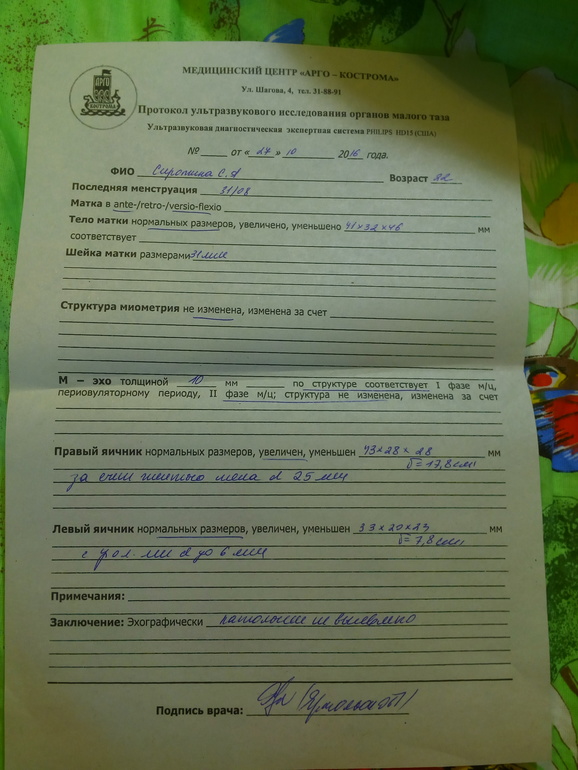 АРГО
КОСТРОМА
МЕДИЦИНСКИЙ ЦЕНТР «АРГО – КОСТРОМА»
Ул. Шагова, 4, тел. 31-88-91
Протокол ультразвукового исследования органов малого таза
Ультразвуковая диагностическая экспертная система PHILIPS HD15 (США)
№ от « 27 » 10 2016 года.
ФИО С.А Возраст 22
Последняя менструация 31/08
Матка в ante-/retro-/versio-flexio
Тело матки нормальных размеров, увеличено, уменьшено 41×32×46 мм
соответствует
Шейка матки размерами 31 мм
Структура миометрия не изменена, изменена за счет
М – эхо толщиной 10 мм по структуре соответствует I фазе м/ц,
периовуляторному периоду, II фазе м/ц; структура не изменена, изменена за счет
Правый яичник нормальных размеров, увеличен, уменьшен 43×28×28
V= 17,8 см
за счет желтого тела d 25 мм
Левый яичник нормальных размеров, увеличен, уменьшен 33×20×23 мм
V= 7,8 см
с фол. ми d до 6 мм
Примечания:
Заключение: Эхографически патологии не выявлено
Подпись врача: